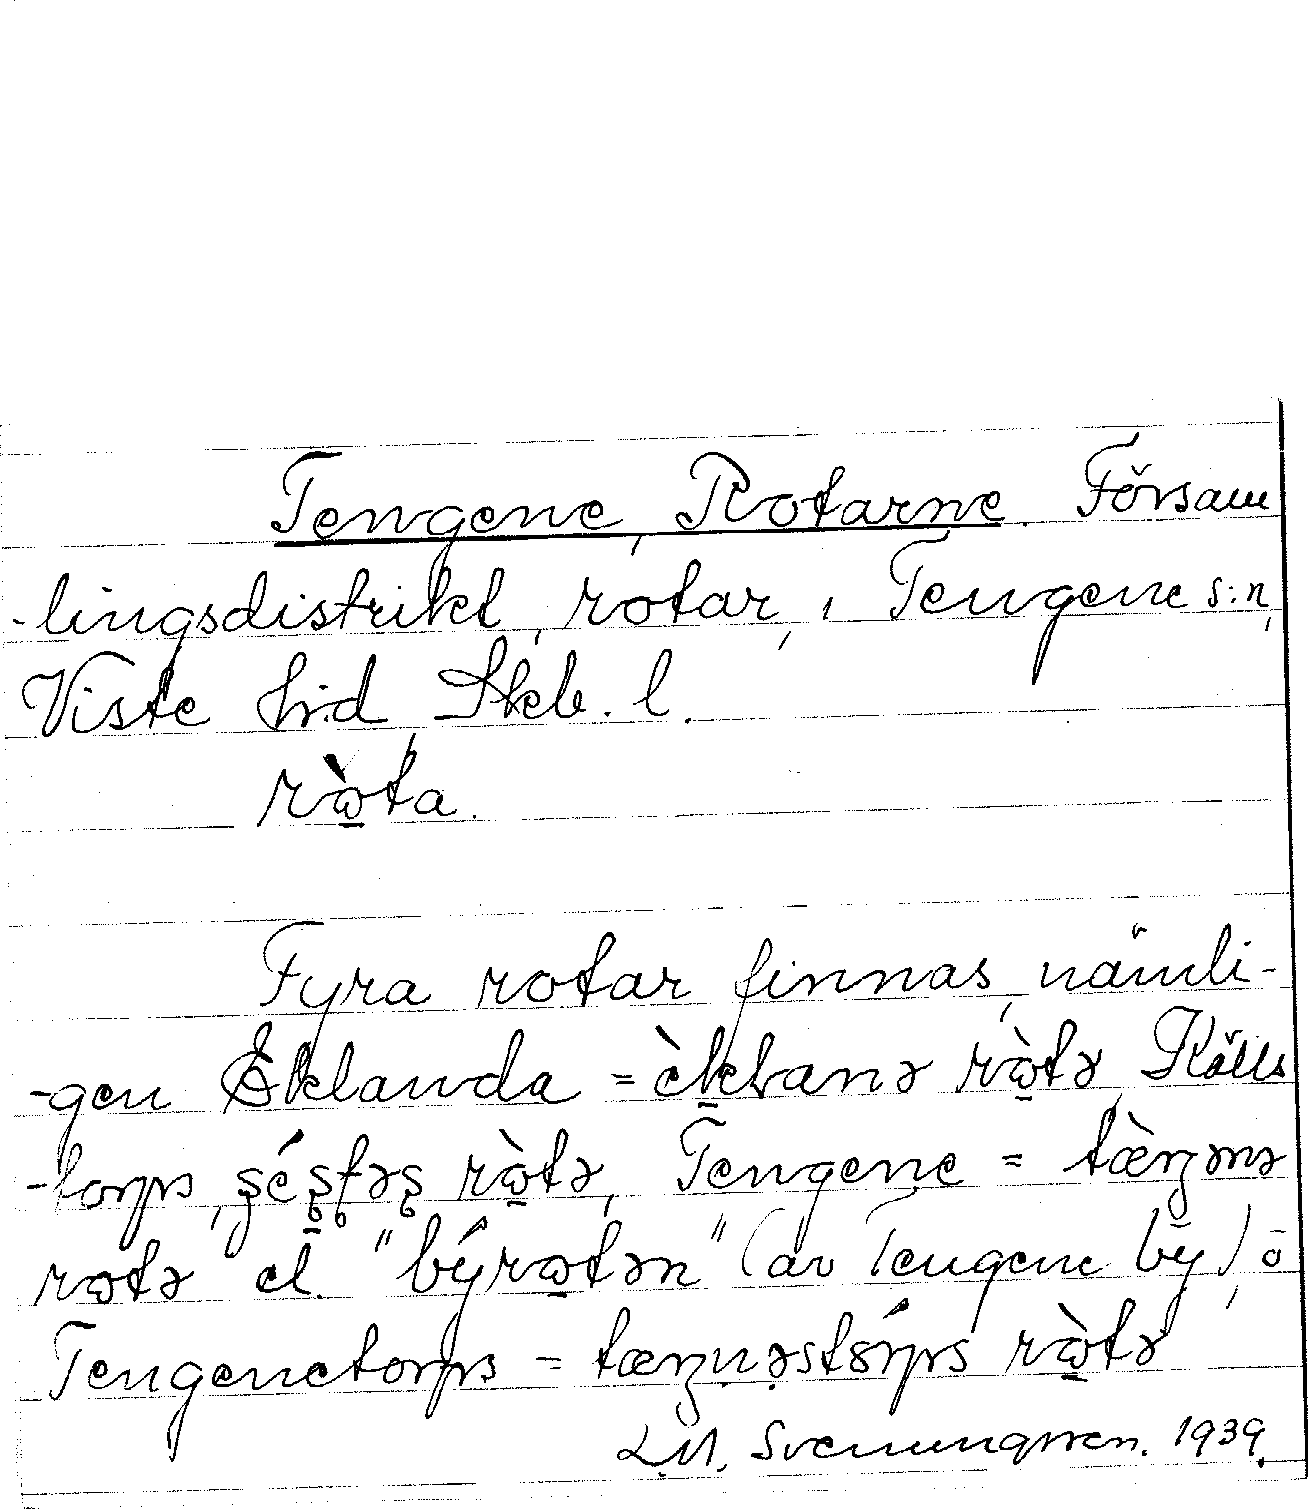 Tengene, Rotarne. Församlingsdistrikt, rotar, i Tengene s:n,
Viste h:d, Skb. l.
rɷ̀ta.
Fyra rotar finnas, nämli-
-gen Eklanda = èkLanə rɷ̀tə, Källs
-torps, rɷ̀tə, Tengene = tæ̀ŋənə
rɷtə el. "býrɷtən" (av Tengene by), ō
Tengenetorps = rɷ̀tə
L.M. Svenungsson. 1939.